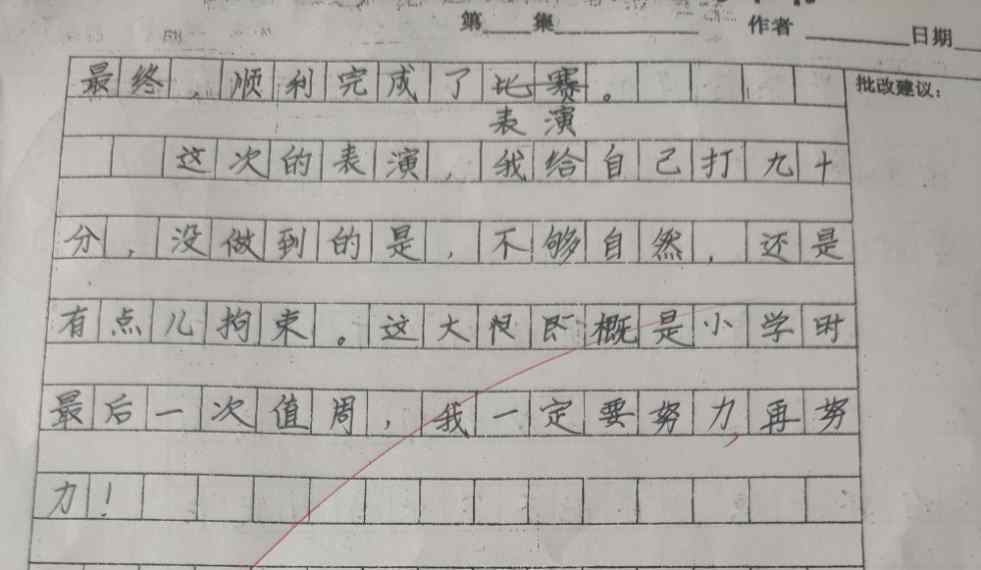 第 集 作者 日期
批改建议：
最终，顺利完成了比赛。
表演
这次的表演，我给自己打九十
分，没做到的是，不够自然，还是
有点儿拘束。这大概是小学时
最后一次值周，我一定要努力，再努
力！